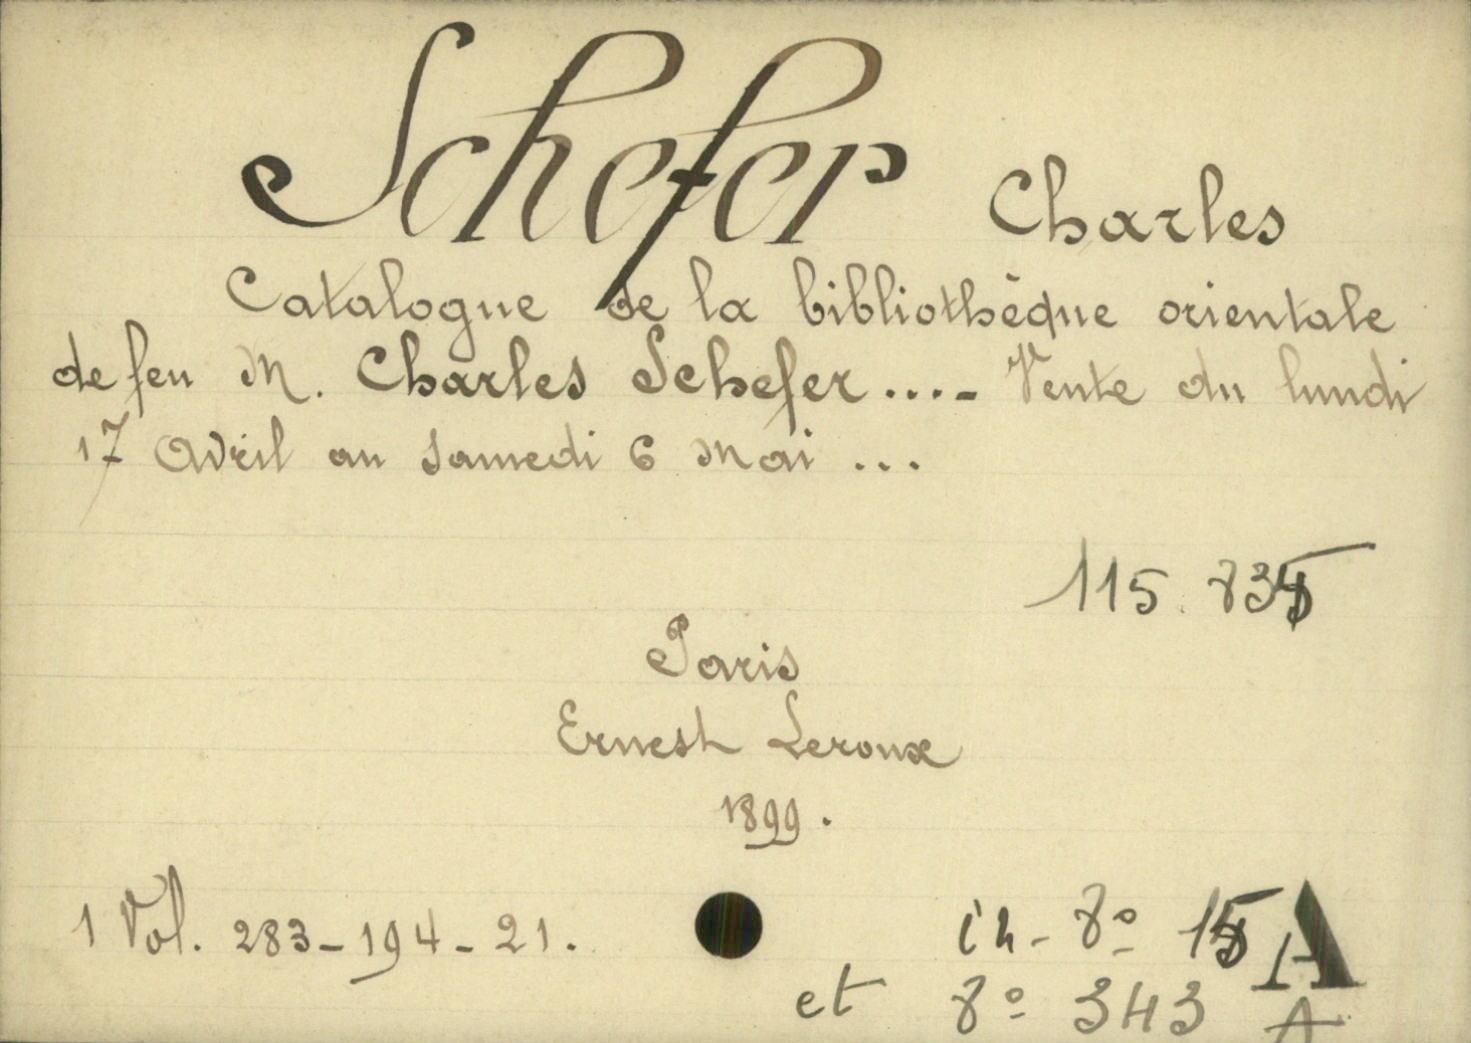 Schefer Charles
Catalogue de la bibliothèque orientale
de feu M. Charles Schefer .... - Vente du lundi
17 Avril au Samedi 6 Mai ...
115.835
Paris
Ernest Leroux
1899.
1 Vol. 283-194-21.
in-8º 15 A
et 8º 343 A